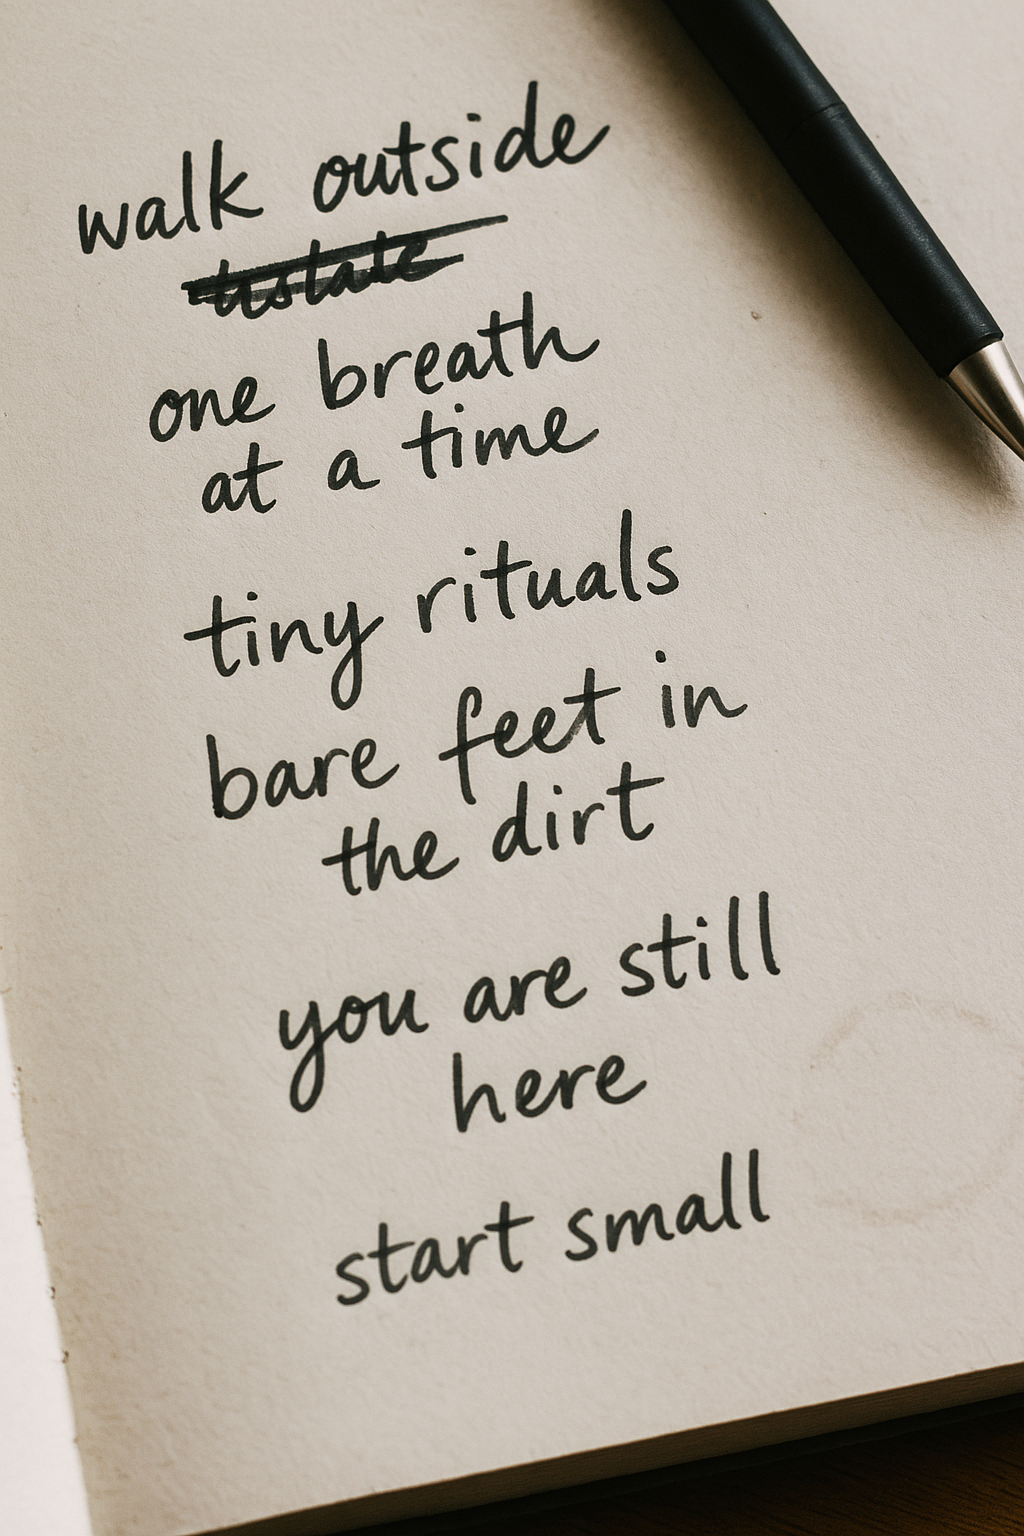 walk outside
one breath
at a time
tiny rituals
bare feet in
the dirt
you are still
here
start small